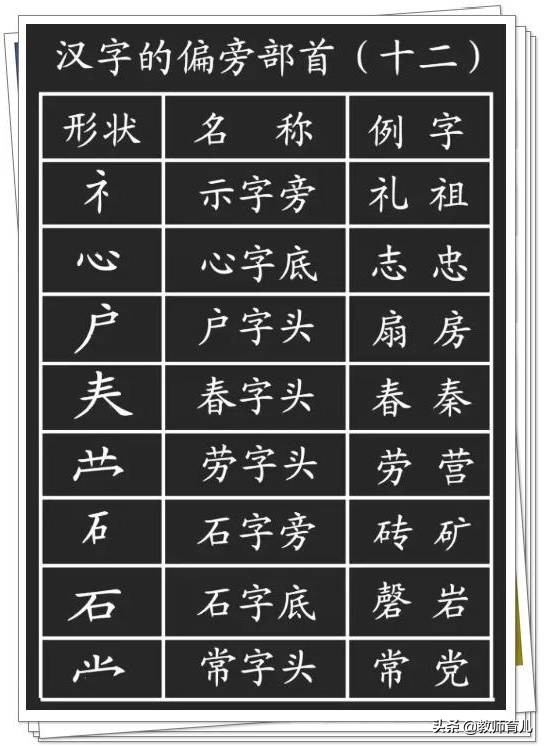 汉字的偏旁部首（十二）
形状 名称 例字
礻 示字旁 礼 祖
心 心字底 志 忠
户 户字头 扇 房
𡗗 春字头 春 秦
龷 劳字头 劳 营
石 石字旁 砖 矿
石 石字底 磬 岩
⺌ 常字头 常 党
头条 @教师育儿